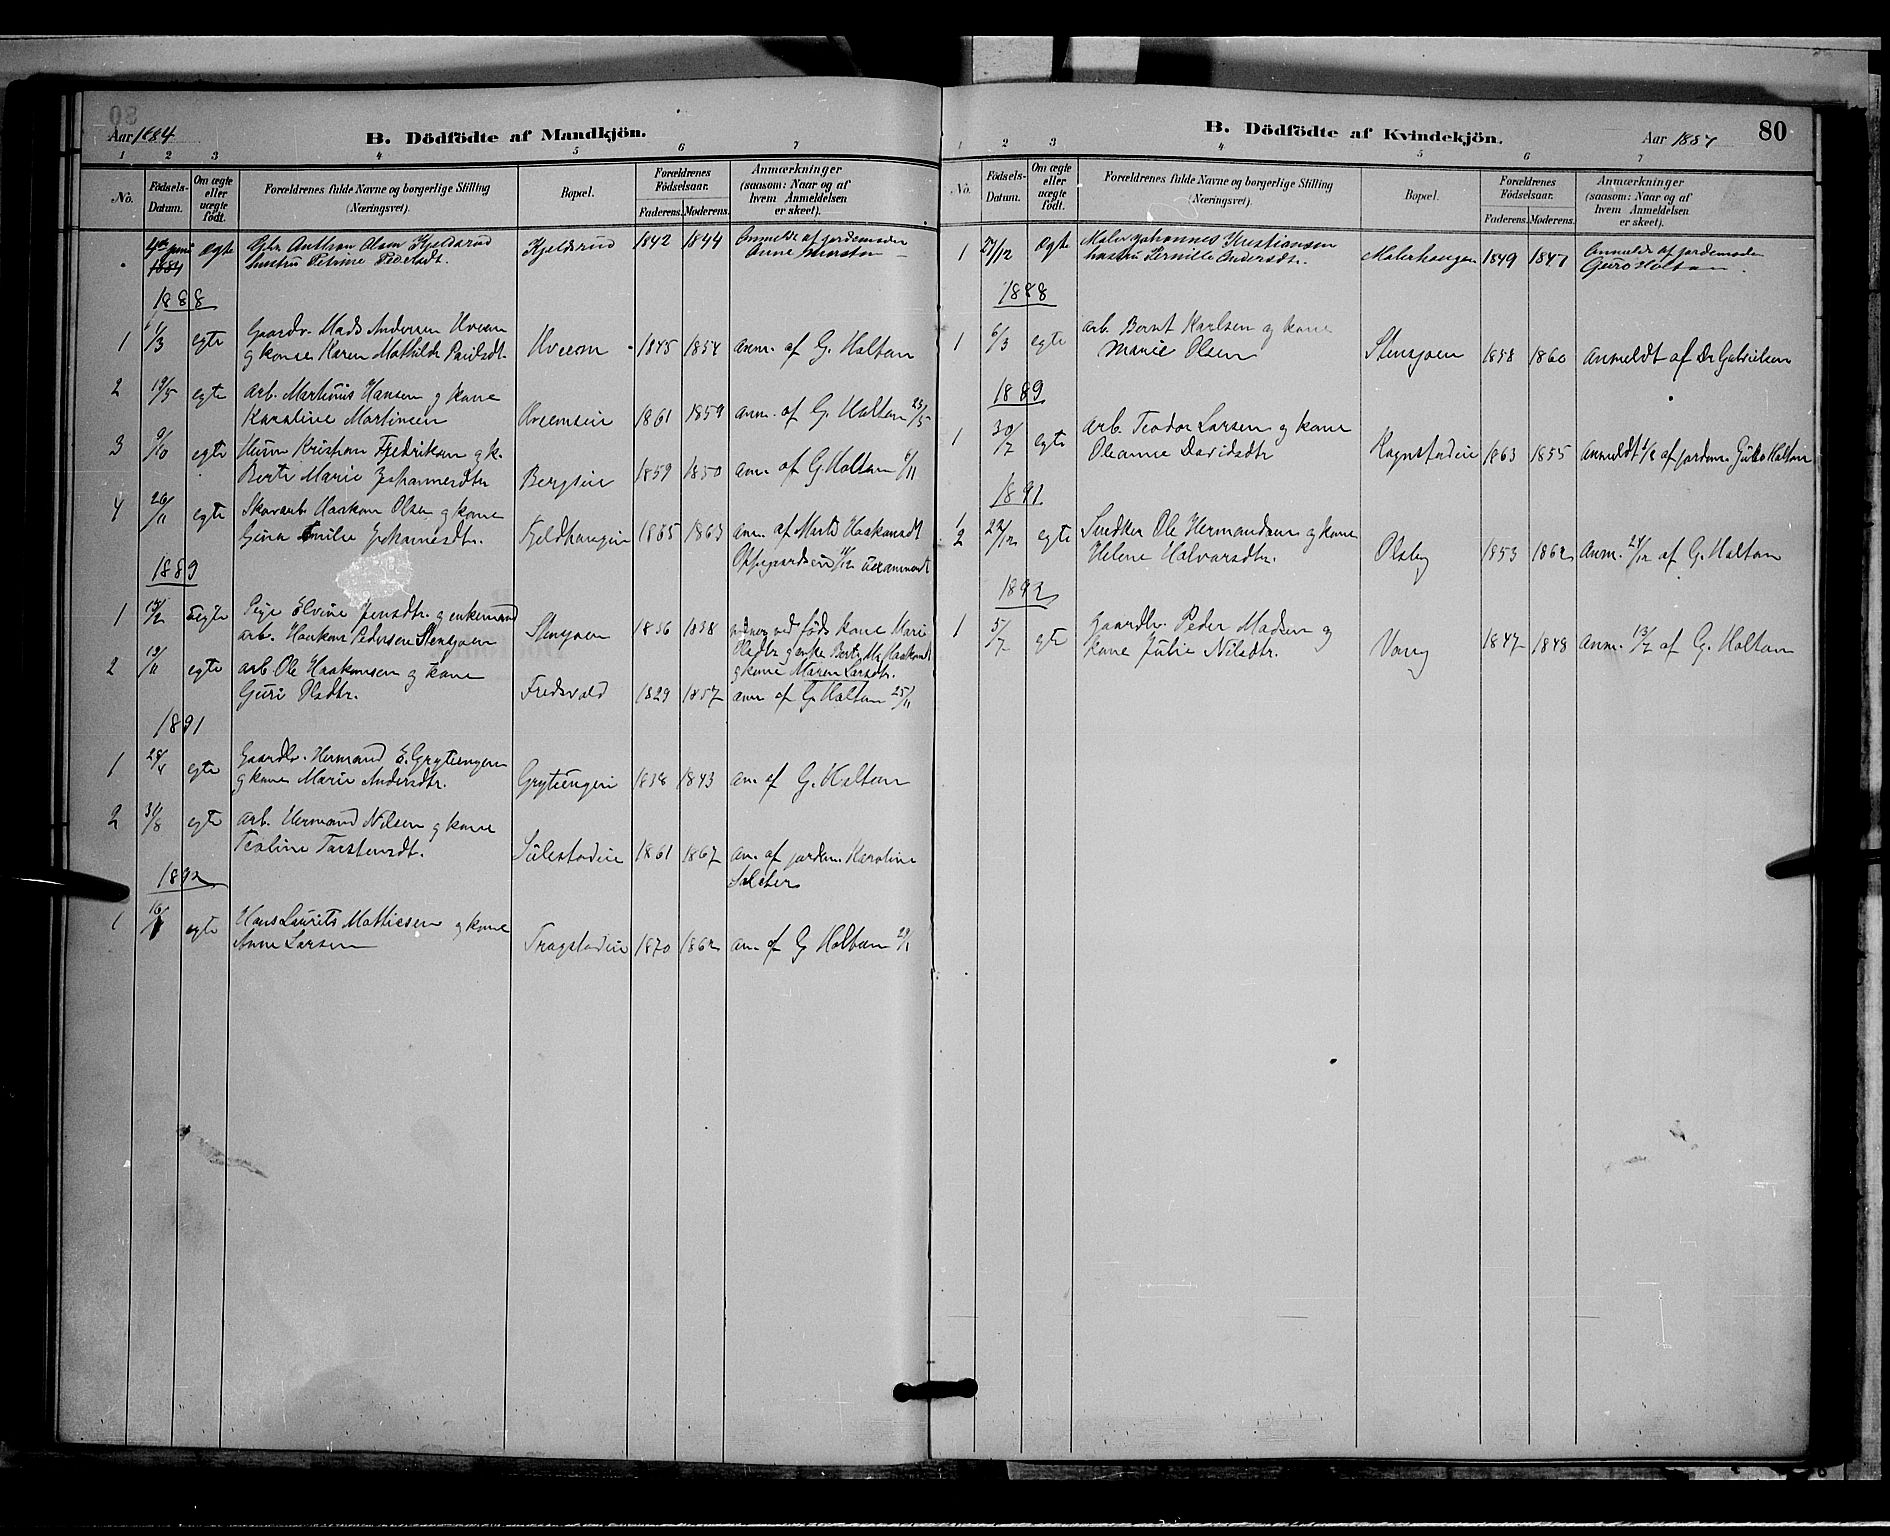 Aar 1884
B. Dödfödte af Mandkjön.
1 2 3 4 5 6 7
No.
Födsels-
Datum.
Om ægte
eller
uægte
födt.
Forældrenes fulde Navne og borgerlige Stilling
(Næringsvei).
Bopæl.
Forældrenes
Födselsaar.
Faderens. Moderens.
Anmærkninger
(saasom: Naar og af
hvem Anmeldelsen
er skeet).
4de juni Ægte Anthon Olsen Kjeldsrud Kjeldsrud 1842 1844 Anmeldt af jordemoder
1884 hustru Petrine Anne
1888
1 1/3 egte Gaardbr. Mads Andersen Hveem
og kone Karen Mathilde Paulsdt. Hveem 1845 1854 anm. af G. Holtan
2 19/5 egte Arb. Martinius Hansen og kone
Karoline Martinsen Hveemseie 1861 1859 anm. af G. Holtan 23/5
3 9/10 egte Husm Kristian Fredriksen og k.
Berte Marie Johannesdtr Bergseie 1859 1850 anm. af G. Holtan 6/11
4 26/11 egte Skovarb. Haakon Olsen og kone
Gina Emilie Johannesdtr. Fjeldhaugen 1835 1863 anm. af Marte Haakonsdt
1889
1 uegte Pige Elvine Jensdtr. og enkemand
arb. Haakon Pedersen Stensjoen Stensjoen 1836 1838 ved føds kone Mari
Olsdtr og enke Berte Haakonsdt
og kone Maren Larsdtr.
2 19/11 egte arb Ole Haakonsen og kone
Guri Olsdtr. Fredsvold 1829 1857 anm af G. Holtan 25/11
1891
1 28/4 egte Gaardbr. Hermand E. Grytengen
og kone Marie Andersdtr. Grytengen 1838 1843 an. af G. Holtan
2 31/8 egte Arb. Hermand Nilsen og kone
Teoline Torstensdt. Sulestadeie 1861 1867 an. af jordem. Karoline
1892
1 egte Hans Laurits Mathiesen og kone
Anne Larsen Fragstadeie 1870 1862 an. af G Holtan
B. Dödfödte af Kvindekjön.
Aar 1887
80
1 2 3 4 5 6 7
No.
Födsels-
Datum.
Om ægte
eller
uægte
födt.
Forældrenes fulde Navne og borgerlige Stilling
(Næringsvei).
Bopæl.
Forældrenes
Födselsaar.
Faderens. Moderens.
Anmærkninger
(saasom: Naar og af
hvem Anmeldelsen
er skeet).
1 27/12 Ægte Maler Johannes Kristiansen
hustru Pernille Andersdt. Malerhaugen 1849 1847 Anmeldt af jordemoder
Guro Holtan.
1888
1 6/3 egte arb. Bernt Karlsen og kone
Marie Olsen Stensjoen 1858 1860 Anmeldt af Dr Gabrielsen
1889
1 30/7 egte Arb. Teodor Larsen og kone
Oleanne Davidsdtr Rognstadeie 1863 1855 Anmeldt 1/8 af jordem. Guro Holtan
1891
1
2 22/12 egte Snedker Ole Hermandsen og kone
Helene Halvorsdtr. Olsby 1853 1862 Anm. 24/12 af G. Holtan
1892
1 5/7 egte Gaardbr. Peder Madsen og
kone Julie Nilsdtr. Vang 1847 1848 Anm. 13/7 af G. Holtan